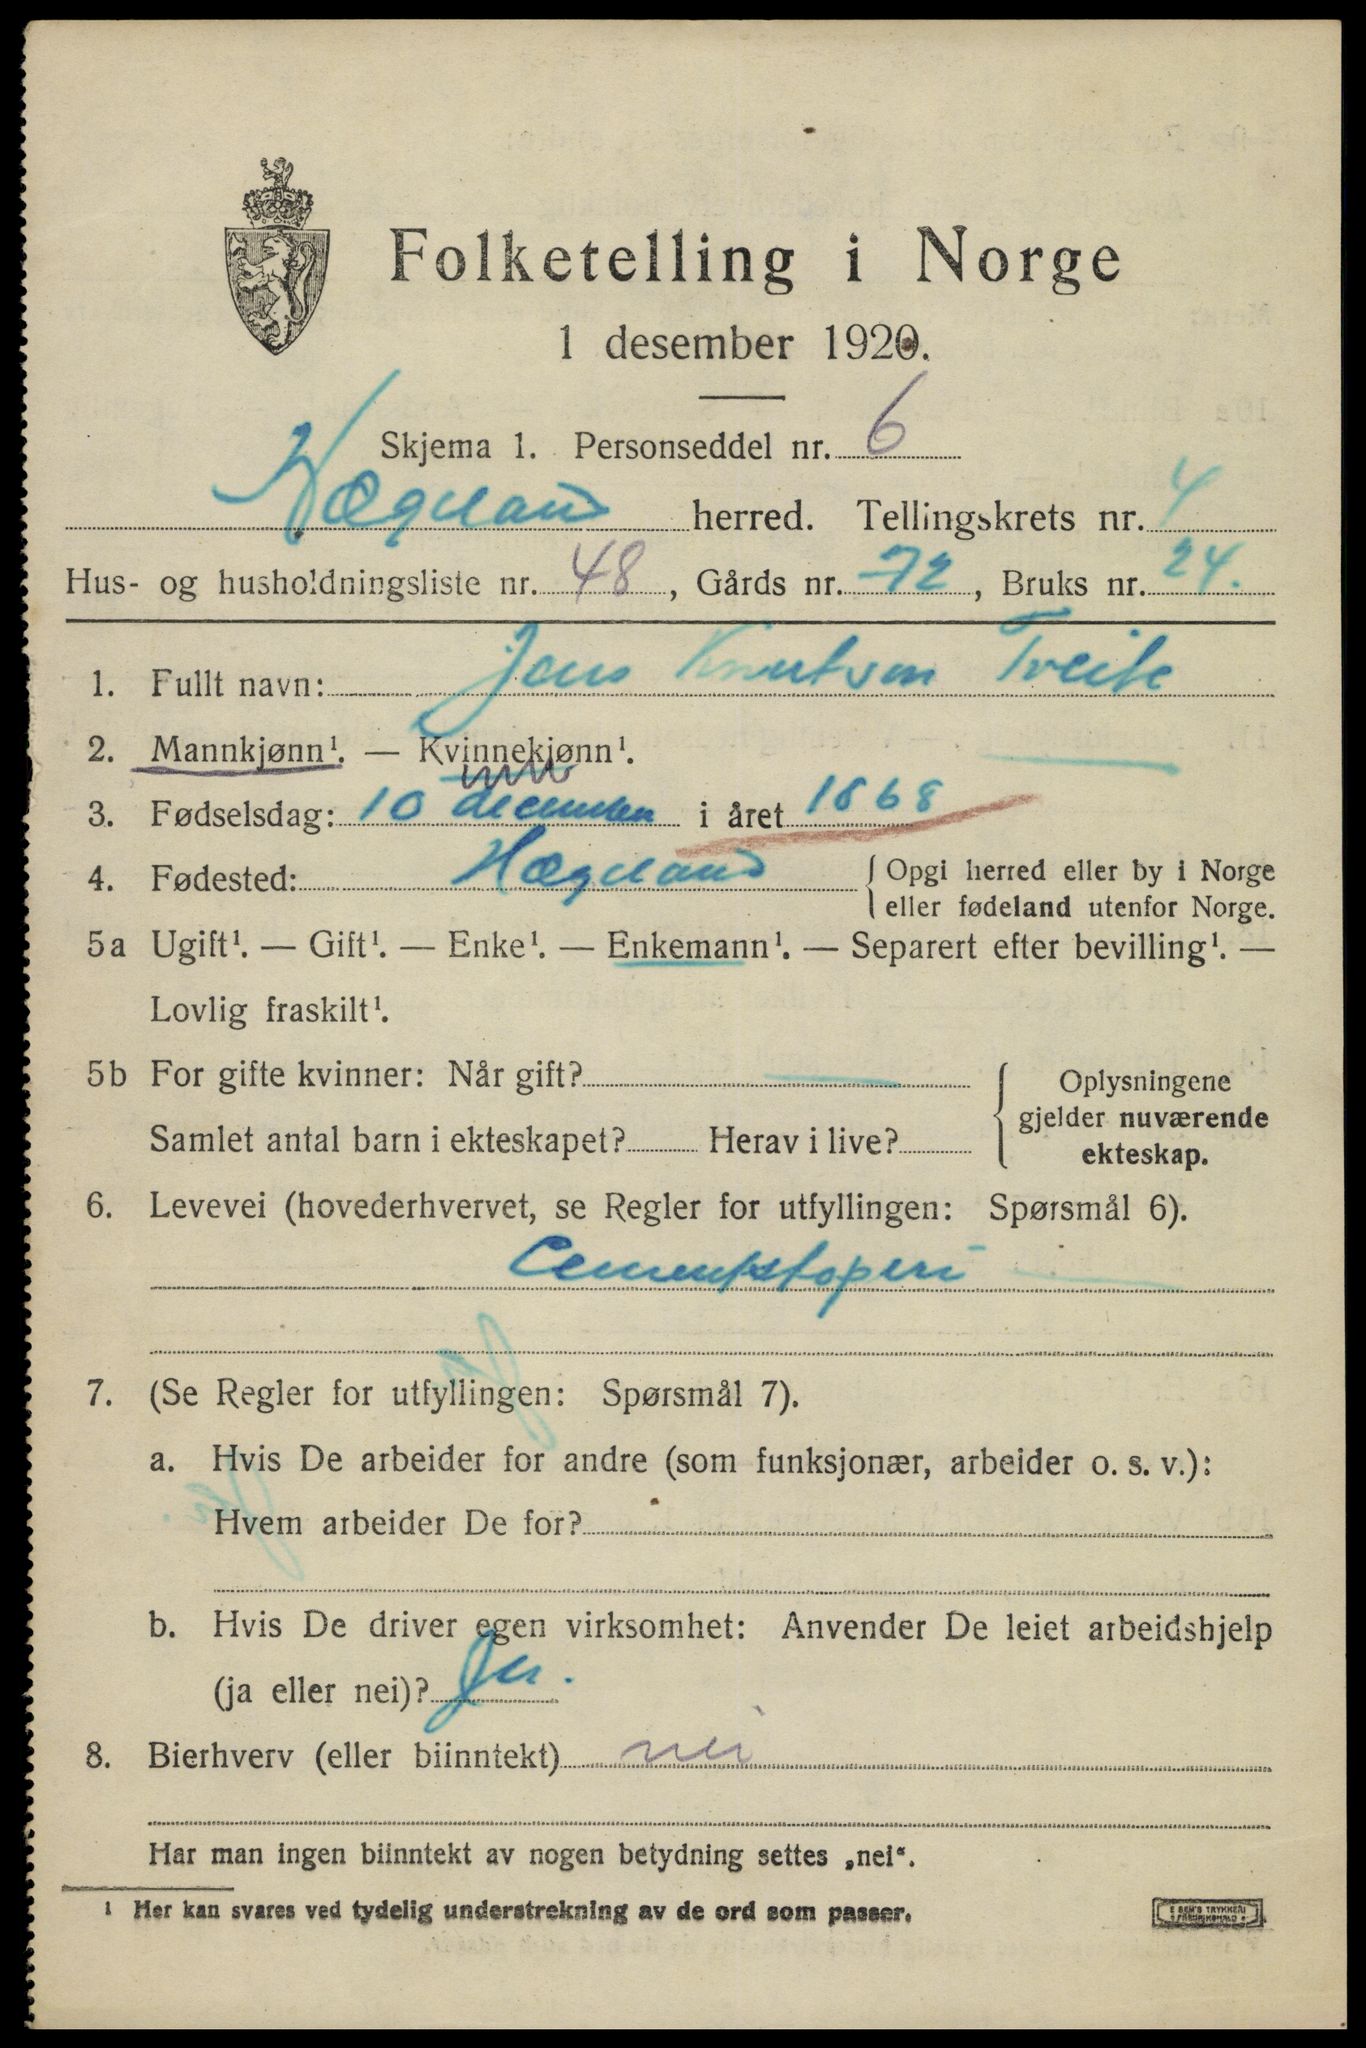 Folketelling i Norge
1 desember 1920.
Skjema 1. Personseddel nr. 6
Hægeland herred. Tellingskrets nr. 4
Hus- og husholdningsliste nr. 48, Gårds nr. 72, Bruks nr. 24.
1. Fullt navn: Jens Knutsen Tveite
2. Mannkjønn¹. — Kvinnekjønn¹.
3. Fødselsdag: 10 december i året 1868
4. Fødested: Hægeland { Opgi herred eller by i Norge
eller fødeland utenfor Norge.
5a Ugift¹. — Gift¹. — Enke¹. — Enkemann¹. — Separert efter bevilling¹. —
Lovlig fraskilt¹.
5b For gifte kvinner: Når gift?
Samlet antal barn i ekteskapet? Herav i live?
Oplysningene
gjelder nuværende
ekteskap.
6. Levevei (hovederhvervet, se Regler for utfyllingen: Spørsmål 6).
Cementstøperi
7. (Se Regler for utfyllingen: Spørsmål 7).
a. Hvis De arbeider for andre (som funksjonær, arbeider o. s. v.):
Hvem arbeider De for?
b. Hvis De driver egen virksomhet: Anvender De leiet arbeidshjelp
(ja eller nei)? Ja.
8. Bierhverv (eller biinntekt) nei
Har man ingen biinntekt av nogen betydning settes „nei“.
¹ Her kan svares ved tydelig understrekning av de ord som passer.